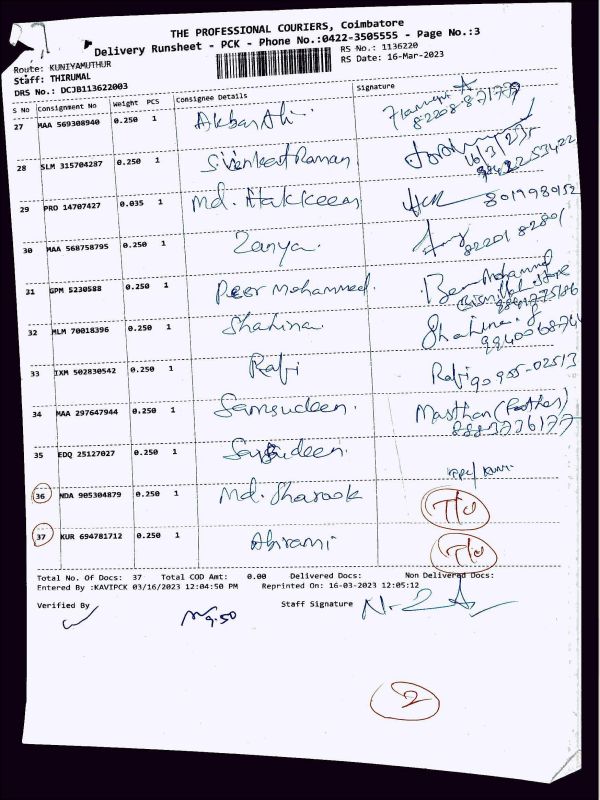 THE PROFESSIONAL COURIERS, Coimbatore
Delivery Runsheet - PCK - Phone No.:0422-3505555 - Page No.:3
Route: KUNIYAMUTHUR
RS No.: 1136220
Staff: THIRUMAL
RS Date: 16-Mar-2023
DRS No.: DCJB113622003
S No Consignment No Weight PCS Consignee Details Signature
27 MAA 569308940 0.250 1 Akbar Ali
28 SLM 315704287 0.250 1 S. Venkat Raman 16/3/23
29 PRO 14707427 0.035 1 Md. Hakkeem 8019980152
30 MAA 568758795 0.250 1 Zanya. 82201 82801
31 GPM 5230588 0.250 1 Peer Mohammed Bismillah Store
32 MLM 70018396 0.250 1 Shahina Shahina
33 IXM 502830542 0.250 1 Rafi Rafi 90955-02513
34 MAA 297647944 0.250 1 Samsudeen. Masthan (Father)
35 EDQ 25127027 0.250 1
36 NDA 905304879 0.250 1 Md. Sharook T/O
37 KUR 694781712 0.250 1 Abirami T/O
Total No. Of Docs: 37 Total COD Amt: 0.00 Delivered Docs: Non Delivered Docs:
Entered By :KAVIPCK 03/16/2023 12:04:50 PM Reprinted On : 16-03-2023 12:05:12
Verified By Staff Signature
9.50
2